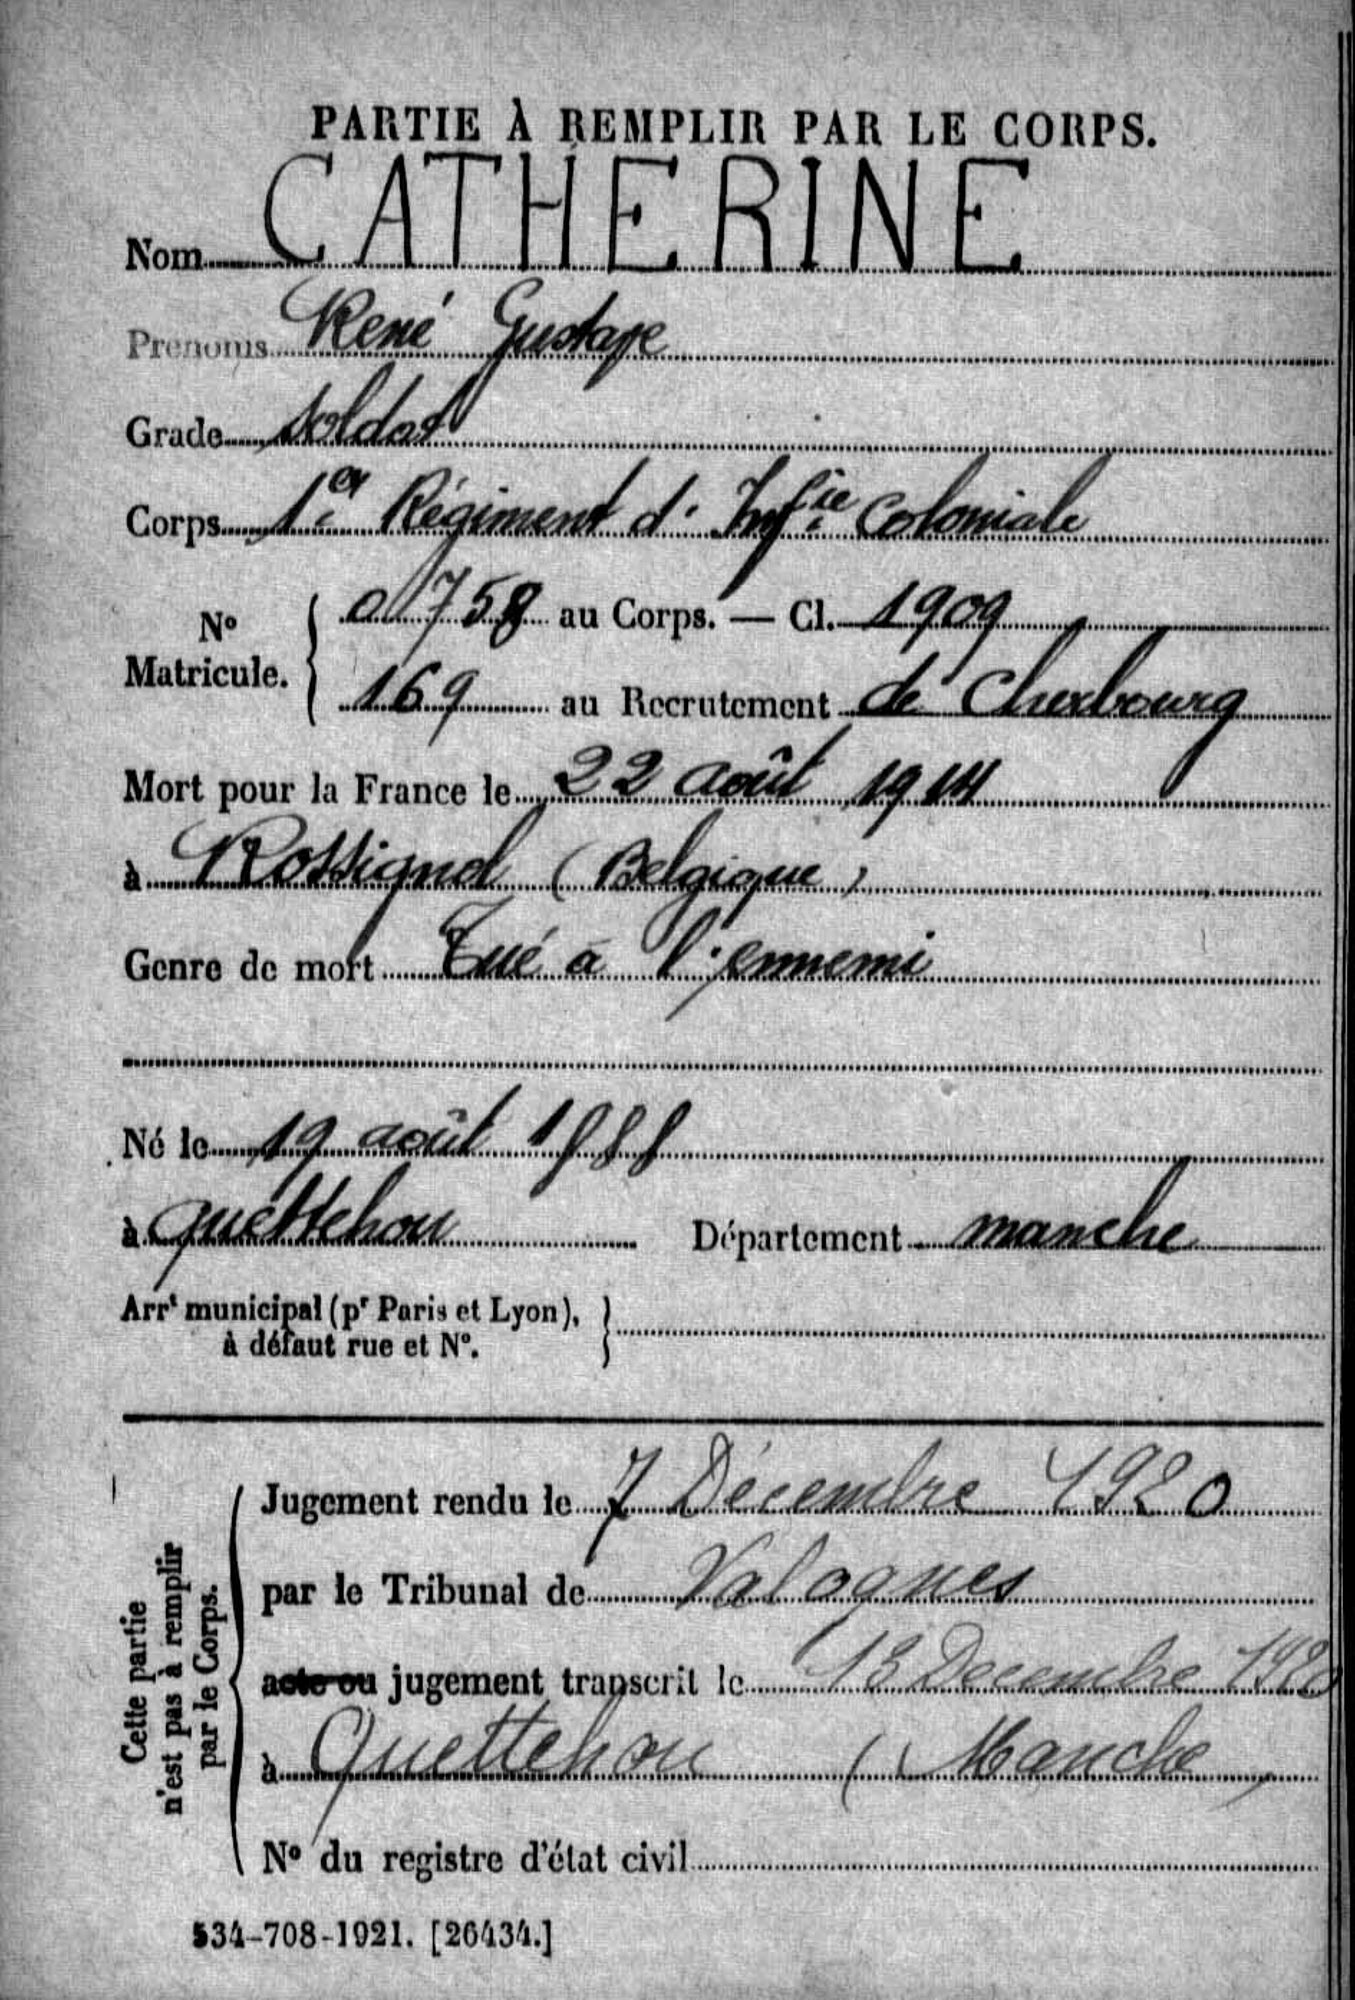 PARTIE À REMPLIR PAR LE CORPS.
Nom CATHERINE
Prénoms René Gustave
Grade soldat
Corps 1er Régiment d'Infie Coloniale
No Matricule. { 0758 au Corps. — Cl. 1909
169 au Recrutement de Cherbourg
Mort pour la France le 22 août 1914
à Rossignol (Belgique)
Genre de mort Tué à l'ennemi
Né le 19 août 1888
à Quettehou Département manche
Arrt municipal (pr Paris et Lyon),
à défaut rue et No.
Cette partie
n'est pas à remplir
par le Corps.
Jugement rendu le 7 Décembre 1920
par le Tribunal de Valognes
acte ou jugement transcrit le 13 Decembre 1920
à Quettehou (Manche)
No du registre d'état civil
534-708-1921. [26434.]